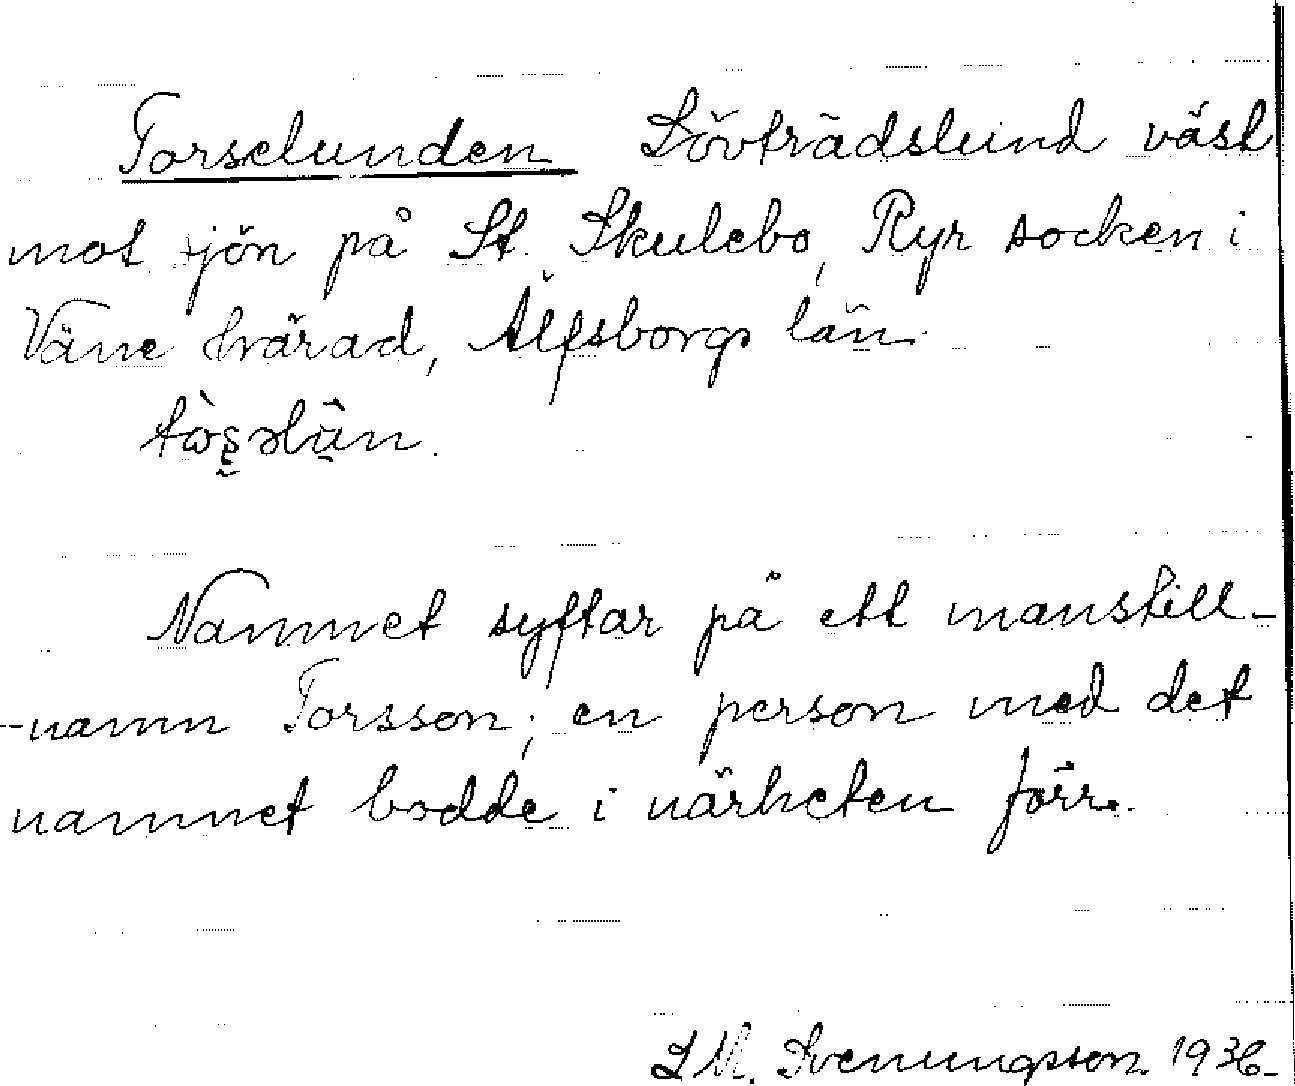 Torselunden Lövträdslund väst
mot sjön på St. Skulebo, Ryr socken i
Väne härad, Älfsborgs län.
Namnet syftar på ett manstill-
-namn Torsson; en person med det
namnet bodde i närheten förr.
S M. Svenungsson. 1936